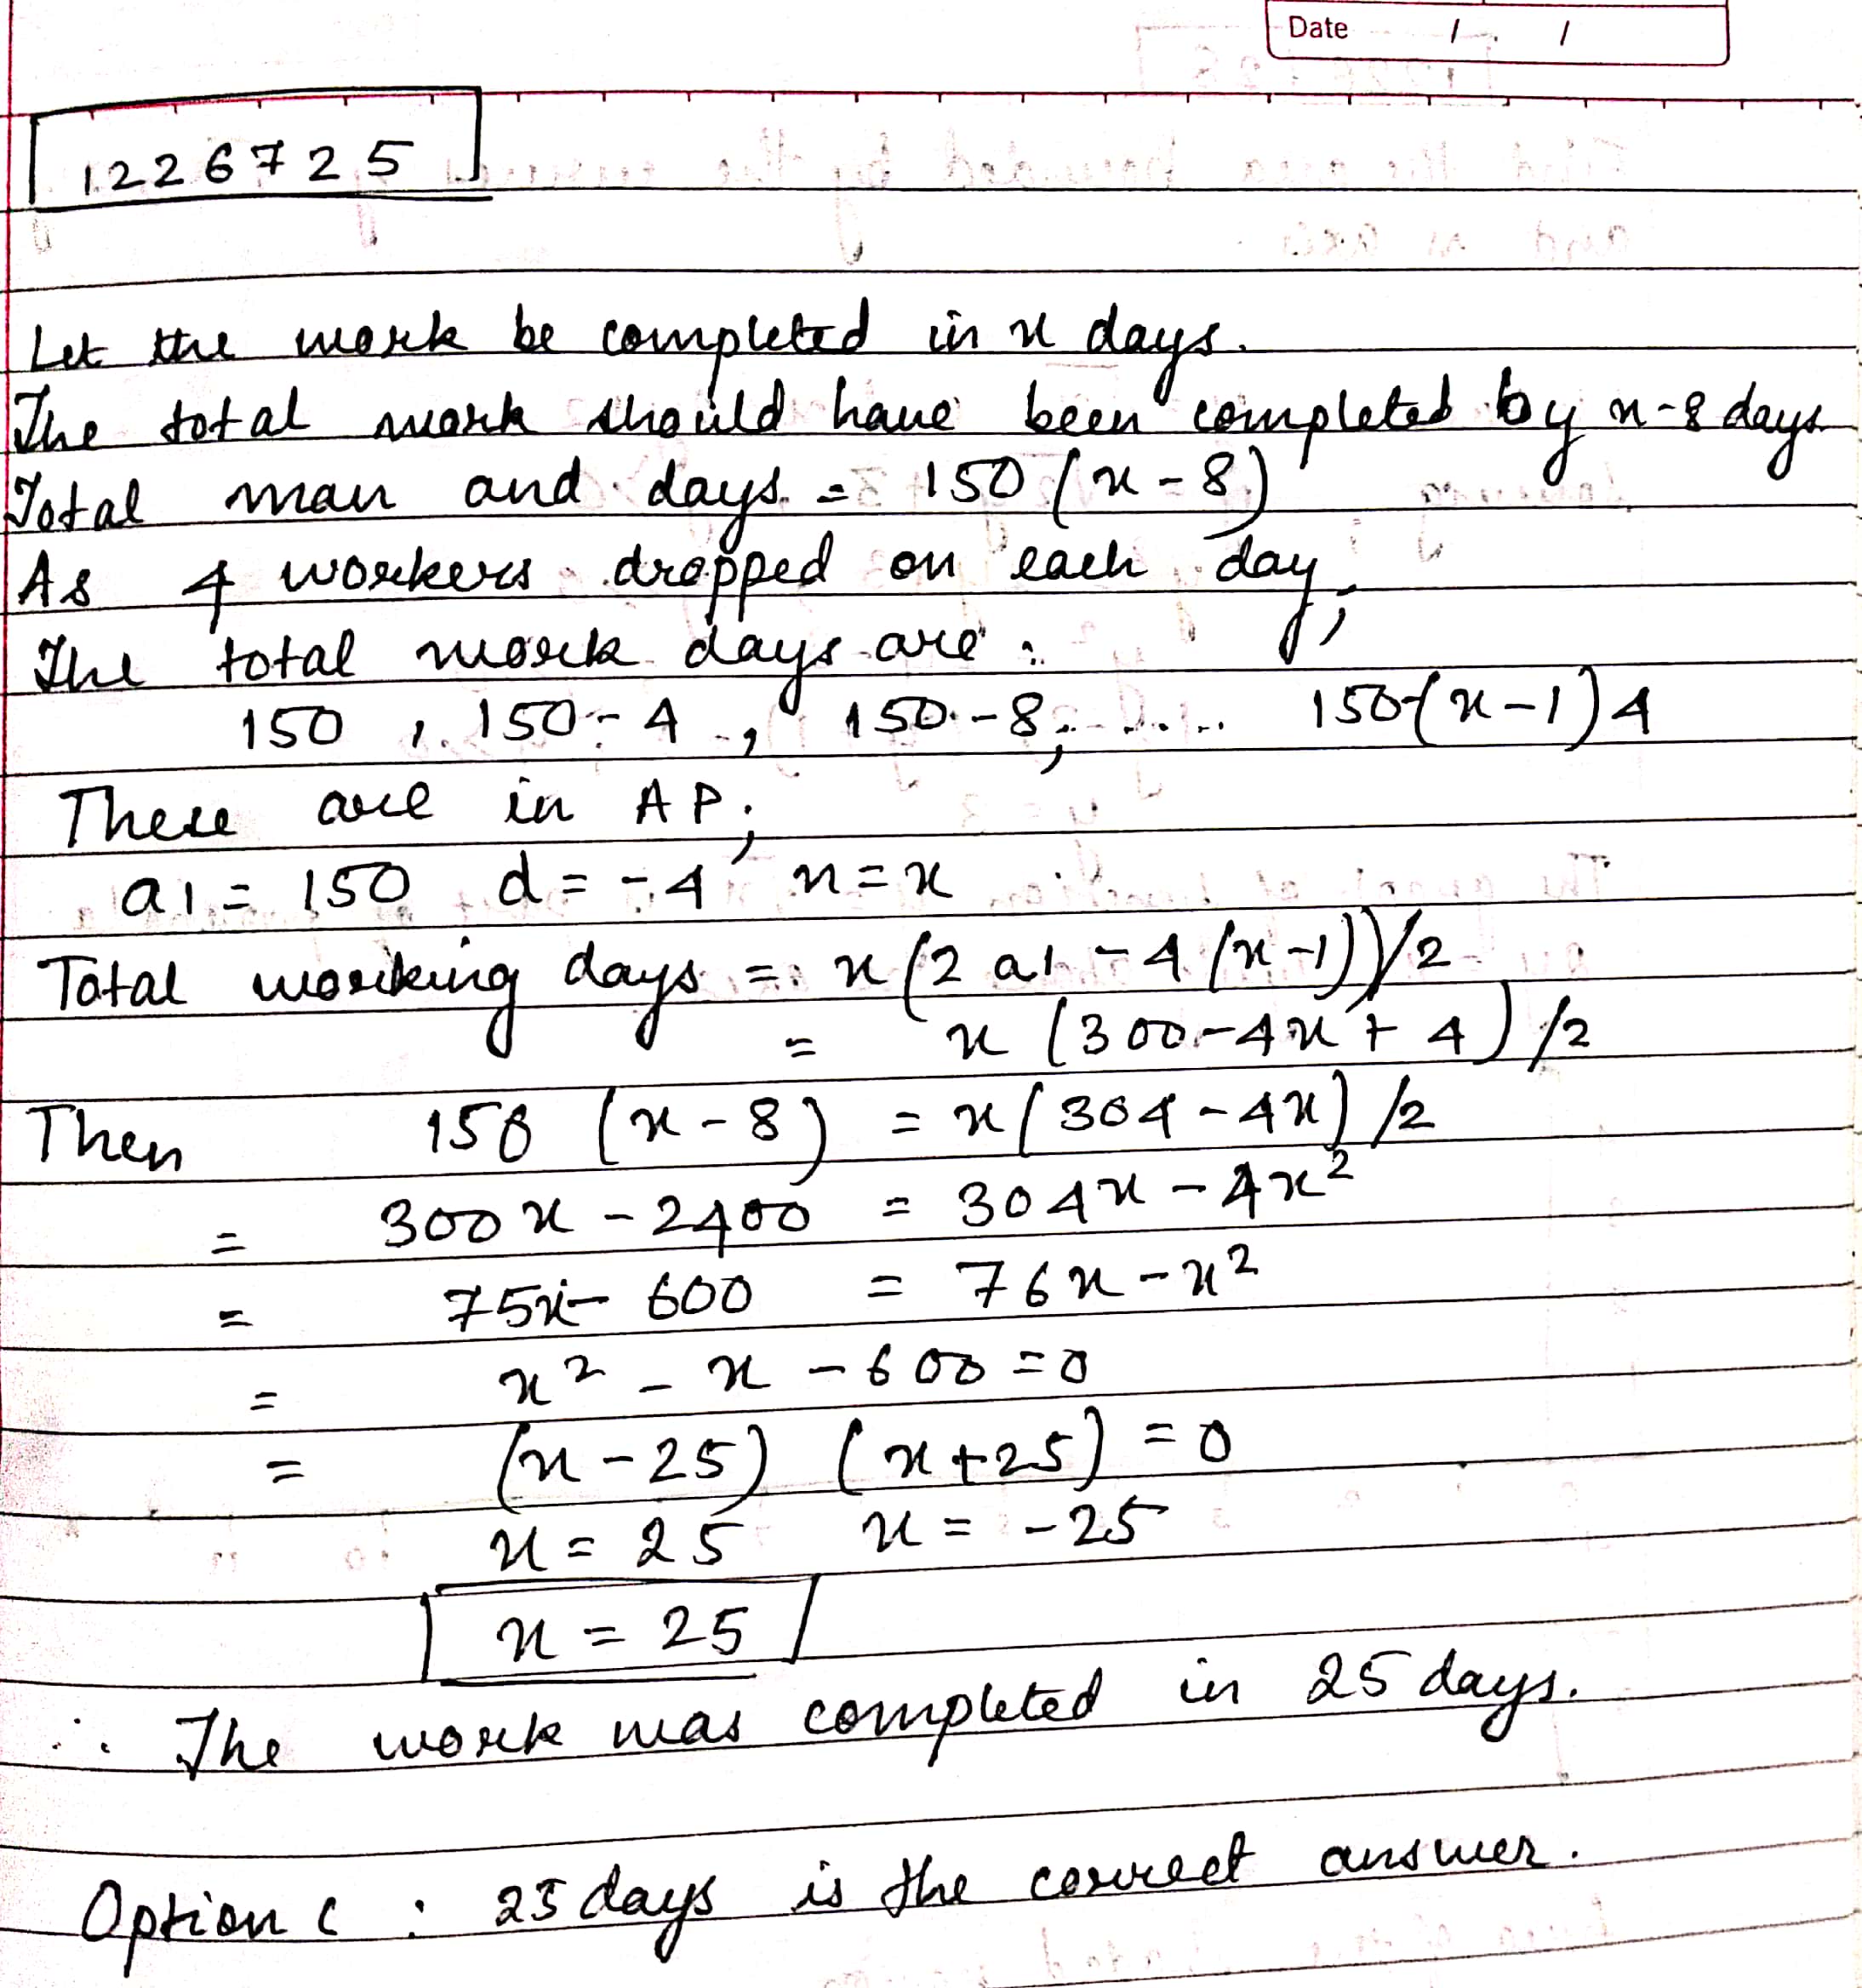 Date / /
1226725
Let the work be completed in x days.
The total work should have been completed by x-8 days
Total man and days = 150 (x-8)
As 4 workers dropped on each day,
The total work days are:
150, 150-4, 150-8, ..... 150-(x-1)4
These are in AP;
a1 = 150 d = -4 n = x
Total working days = x(2a1 - 4(x-1))/2
= x (300-4x+4)/2
Then 150 (x-8) = x(304-4x)/2
= 300x - 2400 = 304x - 4x²
= 75x - 600 = 76x - x²
= x² - x - 600 = 0
= (x-25) (x+25) = 0
x = 25 x = -25
x = 25
∴ The work was completed in 25 days.
Option c : 25 days is the correct answer.